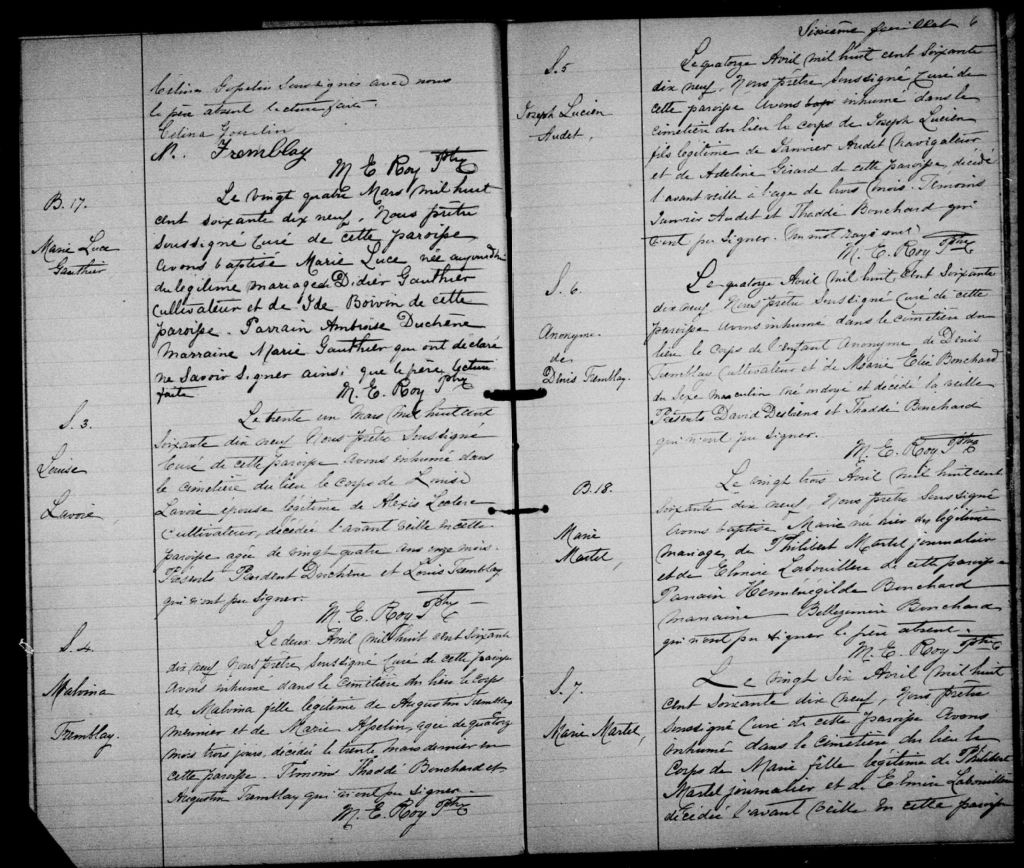 Célina Gosselin Soussignés avec nous
le père absent lecture faite.
Célina Gosselin
N. Tremblay
M. E. Roy Ptre
B. 17.
Marie Luce
Gauthier
Le vingt quatre Mars mil huit
cent soixante dix neuf, Nous prêtre
soussigné Curé de cette paroisse
avons baptisé Marie Luce née aujourd'hui
du légitime mariage de Didier Gauthier
Cultivateur et de Ide Boivin de cette
paroisse. Parrain Ambroise Duchêne
Marraine Marie Gauthier qui ont declaré
ne Savoir Signer ainsi que le père lecture
faite
M. E. Roy Ptre
S. 3.
Louise
Lavoie
Le trente un mars mil huit cent
Soixante dix neuf Nous prêtre Soussigné
Curé de cette paroisse avons inhumé dans
le cimetière du lieu le corps de Louise
Lavoie epouse légitime de Alexis Leclerc
Cultivateur, décédée l'avant veille en cette
paroisse agée de vingt quatre ans onze mois.
Présents Duchêne et Louis Tremblay
qui n'ont pu signer.
M. E. Roy Ptre
S. 4.
Malvina
Tremblay.
Le deux Avril mil huit cent Soixante
dix neuf Nous prêtre Soussigné Curé de cette paroisse
avons inhumé dans le cimetière du lieu le corps
de Malvina fille légitime de Augustin Tremblay
meunier et de Marie Asselin, agée de quatorze
mois trois jours, décédée le trente mars dernier en
cette paroisse. Témoins Thaddé Bouchard et
Augustin Tremblay qui n'ont pu Signer.
M. E. Roy Ptre
Sixième feuillet 6
S. 5
Joseph Lucien
Audet,
Le quatorze Avril mil huit cent Soixante
dix neuf, Nous prêtre Soussigné Curé de
cette paroisse avons inhumé dans le
cimetière du lieu le corps de Joseph Lucien
fils légitime de Janvier Audet Navigateur
et de Adeline Girard de cette paroisse, décédé
l'avant veille à l'age de trois mois. Témoins
Janvier Audet et Thaddé Bouchard qui
n'ont pu Signer. Un mot rayé nul
M. E. Roy Ptre
S. 6.
Anonyme
de
Dénis Tremblay.
Le quatorze Avril mil huit cent Soixante
dix neuf, Nous prêtre Soussigné Curé de cette
paroisse avons inhumé dans le cimetière du
lieu le corps de l'enfant Anonyme de Dénis
Tremblay Cultivateur et de Marie Bouchard
du Sexe masculin né ondoyé et décédé la veille
Présents David Desbiens et Thaddé Bouchard
qui n'ont pu Signer.
M. E. Roy Ptre
B. 18.
Marie
Martel,
Le vingt trois Avril mil huit cent
soixante dix neuf, Nous prêtre Soussigné
avons baptisé Marie née hier du légitime
mariage de Philibert Martel journalier
et de Elmire Labouillere de cette paroisse
Parrain Herménégilde Bouchard
marraine Bouchard
qui n'ont pu signer le père absent.
M. E. Roy Ptre
S. 7.
Marie Martel,
Le vingt Six Avril mil huit
cent Soixante dix neuf, Nous prêtre
soussigné Curé de cette paroisse avons
inhumé dans le Cimetière du lieu le
Corps de Marie fille légitime de Philibert
Martel journalier et de Elmire Labouillere
décédée l'avant veille en cette paroisse